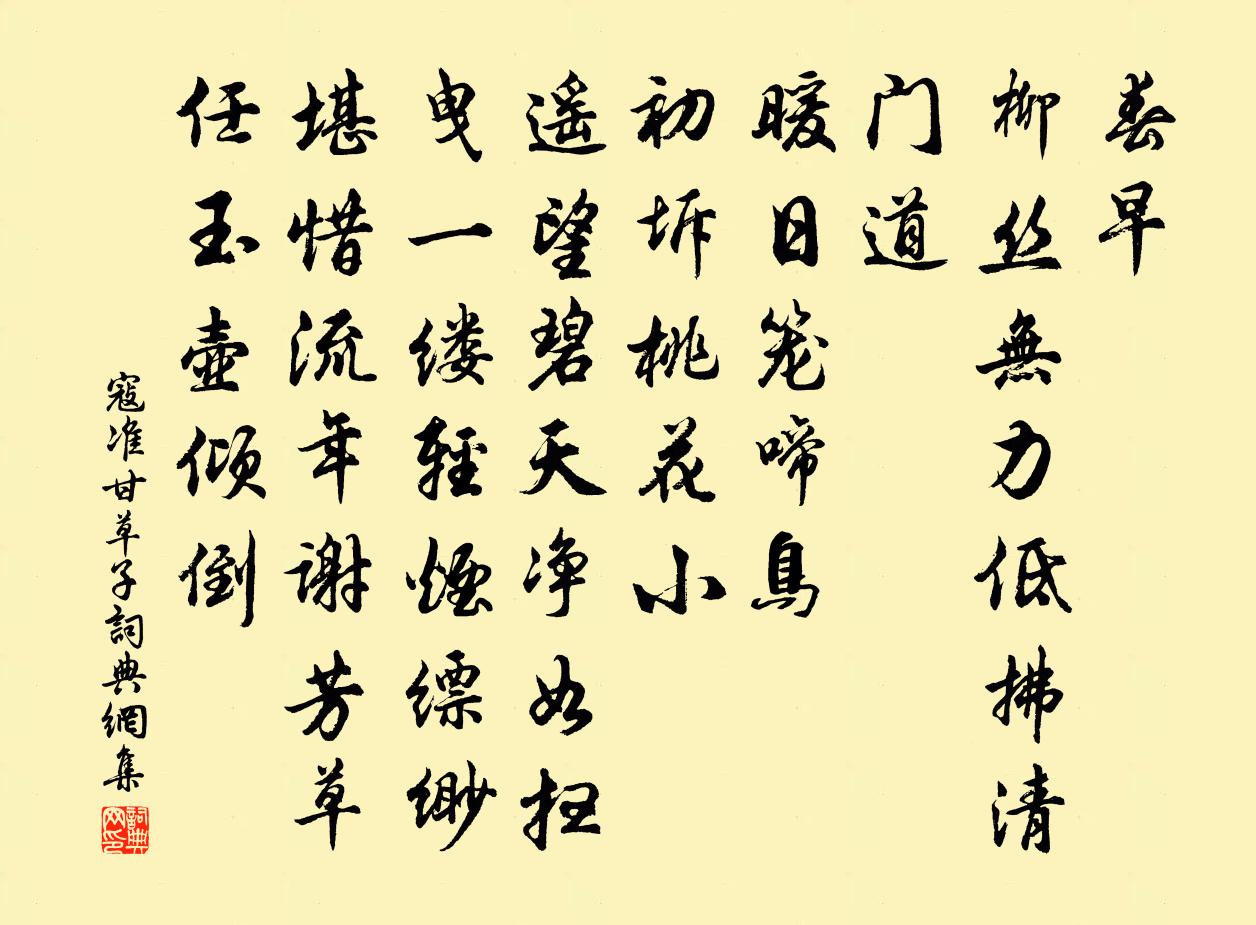 春早
柳丝無力低拂清
门道
暖日笼啼鳥
初坼桃花小
遥望碧天净如扫
曳一缕輕煙缥缈
堪惜流年谢芳草
任玉壺倾倒
寇准甘草子詞典網集
詞典
网印